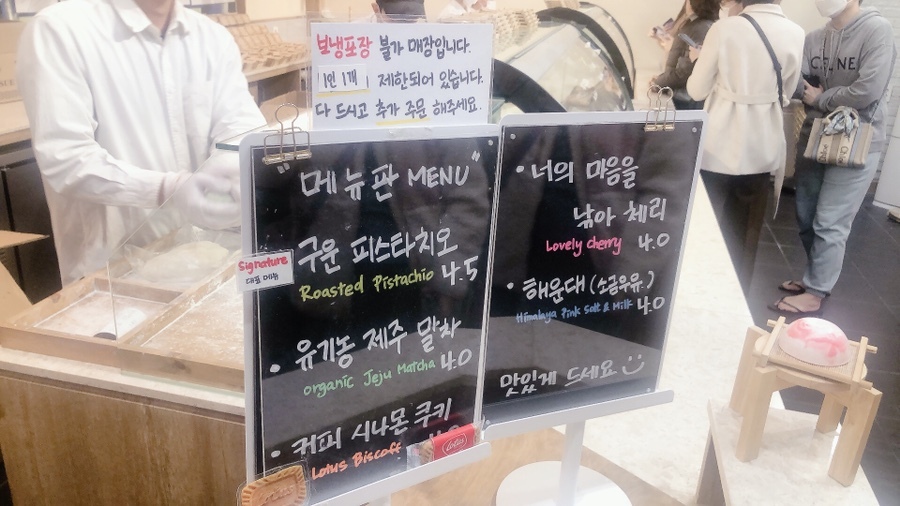 보냉포장 불가 매장입니다.
1인 1개 제한되어 있습니다.
다 드시고 추가 주문 해주세요.
"메뉴판 MENU"
Signature
대표 메뉴
구운 피스타치오
Roasted Pistachio 4.5
• 유기농 제주 말차
organic Jeju Matcha 4.0
• 커피 시나몬 쿠키
Lotus Biscoff
Lotus
• 너의 마음을
낚아 체리
Lovely cherry 4.0
• 해운대 (소금우유)
Himalaya Pink Salt & Milk 4.0
맛있게 드세요